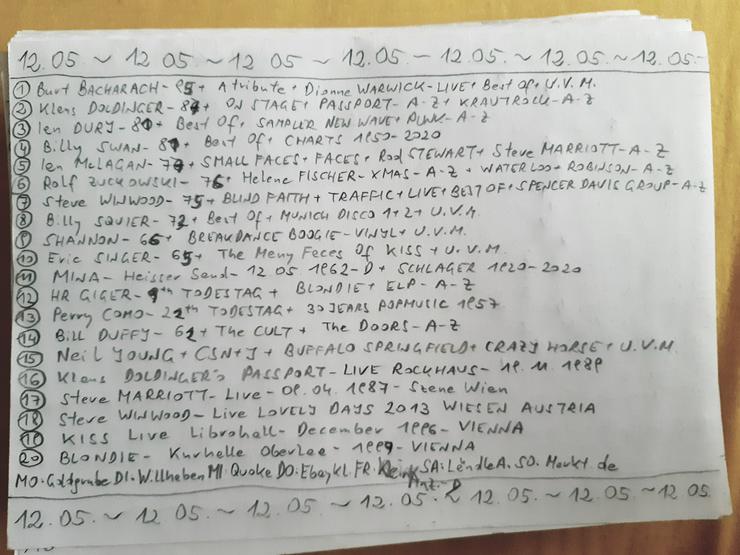 12.05.~ 12 05.~ 12 05 ~ 12.05.~ 12.05.~ 12.05.~ 12.05.-
① Burt BACHARACH - 95 + A tribute + Dionne WARWICK - LIVE + Best Of + U.V.M.
② Klaus DOLDINGER - 87 + ON STAGE + PASSPORT - A-Z + KRAUTROCK - A-Z
③ Ian DURY - 81 + Best Of + SAMPLER NEW WAVE + PUNK - A-Z
④ Billy SWAN - 81 + Best Of + CHARTS 1950-2020
⑤ Ian McLAGAN - 78 + SMALL FACES + FACES + Rod STEWART + Steve MARRIOTT - A-Z
⑥ Rolf ZUCKOWSKI - 76 + Helene FISCHER - XMAS - A-Z + WATERLOO + ROBINSON - A-Z
⑦ Steve WINWOOD - 75 + BLIND FAITH + TRAFFIC + LIVE + BEST OF + SPENCER DAVIS GROUP - A-Z
⑧ Billy SQUIER - 72 + Best Of + MUNICH DISCO 1+2 + U.V.M.
⑨ SHANNON - 66 + BREAKDANCE BOOGIE - VINYL + U.V.M.
⑩ Eric SINGER - 65 + The Meny Feces Of KISS + U.V.M.
⑪ MINA - Heisser Sand - 12 05 1962 - D + SCHLAGER 1920-2020
⑫ HR GIGER - 9th TODESTAG + BLONDIE + ELP - A-Z
⑬ Perry COMO - 22th TODESTAG + 30 JEARS POPMUSIC 1957
⑭ Bill DUFFY - 62 + The CULT + The DOORS - A-Z
⑮ Neil YOUNG + CSN+Y + BUFFALO SPRINGFIELD + CRAZY HORSE + U.V.M.
⑯ Klaus DOLDINGER'S PASSPORT - LIVE ROCKHAUS - 19. 11. 1989
⑰ Steve MARRIOTT - Live - 09. 04. 1987 - Szene Wien
⑱ Steve WINWOOD - Live LOVELY DAYS 2013 WIESEN AUSTRIA
⑲ KISS Live Librohall - December 1996 - VIENNA
⑳ BLONDIE - Kurhalle Oberlaa - 1999 - VIENNA
MO. Goldgrube DI. Willheben MI. Quoke DO. Ebaykl. FR. Klein SA. LändleA. SO. Markt.de
Anz.-D
12.05.~ 12 05.~ 12.05.~ 12.05.~ 12 05.~ 12 05.~ 12 05.